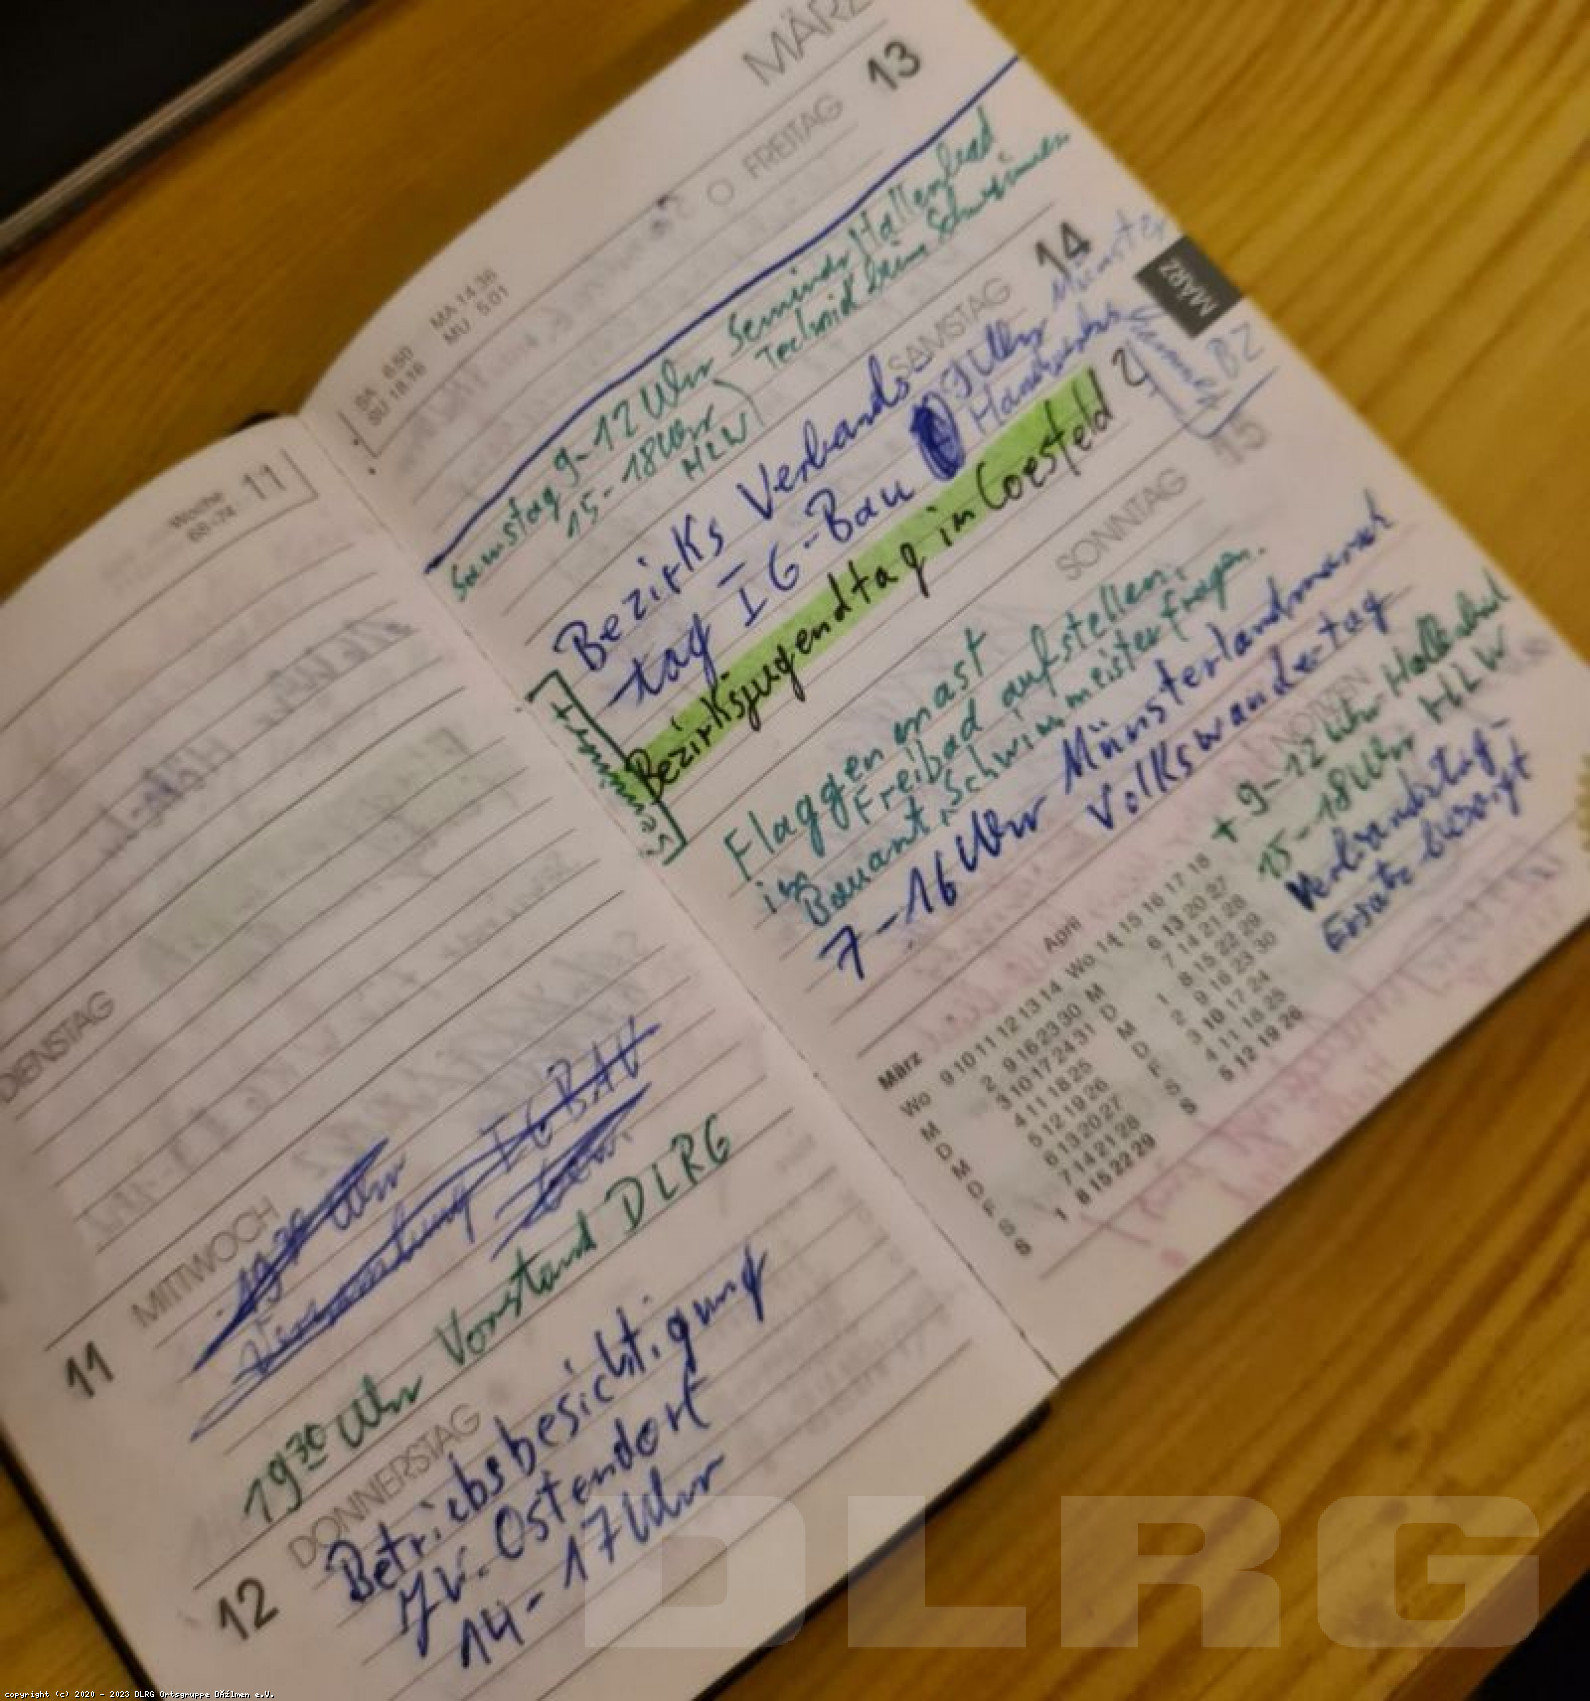 Woche 11
68-74
DIENSTAG
11 MITTWOCH
19 30 Uhr
IG BAU
19 30 Uhr Vorstand DLRG
12 DONNERSTAG
Betriebsbesichtigung
JV. Ostendorf
14-17 Uhr
MÄRZ
13
FREITAG
SA 6.50 MA 14.36
SU 18.16 MU 5.01
Samstag 9-12 Uhr Seminar Hallenbad
15-18 Uhr Technik beim Schwimmen
HLW
14 Münster
SAMSTAG
MÄRZ
Bezirks Verbands
tag IG-Bau 9 Uhr
BZ
Bezirksjugendtag in Coesfeld
15
SONNTAG
Flaggenmast
im Freibad aufstellen.
Bauamt, Schwimmeister fragen.
7-16 Uhr Münsterlandmarsch
Volkswandertag
NOTIZEN
+ 9-12 Uhr Hallenbad
15-18 Uhr HLW
Verbandstag-
Ersatz besorgt
März
Wo 9 10 11 12 13 14
M 2 9 16 23 30
D 3 10 17 24 31
M 4 11 18 25
D 5 12 19 26
F 6 13 20 27
S 7 14 21 28
S 1 8 15 22 29
April
Wo 14 15 16 17 18
M 6 13 20 27
D 7 14 21 28
M 1 8 15 22 29
D 2 9 16 23 30
F 3 10 17 24
S 4 11 18 25
S 5 12 19 26
DLRG
copyright (c) 2020 - 2023 DLRG Ortsgruppe DÃ¼lmen e.V.